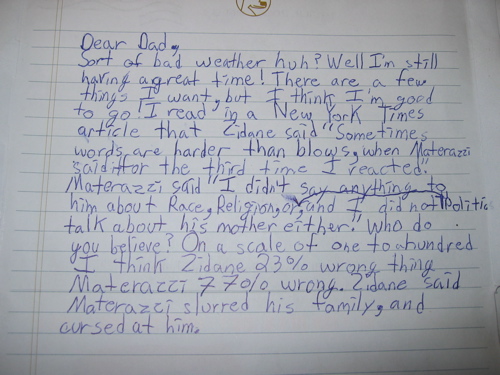 Dear Dad,
Sort of bad weather huh? Well I'm still
having a great time! There are a few
things I want, but I think I'm good
to go! I read in a New York Times
article that Zidane said "Sometimes
words are harder than blows, when Materazzi
said it for the third time I reacted."
Materazzi said "I didn't say anything to
him about Race, Religion, or, and I did not Politic
talk about his mother either." Who do
you believe? On a scale of one to a hundred
I think Zidane 23% wrong thing
Materazzi 77% wrong. Zidane said
Materazzi slurred his family, and
cursed at him.